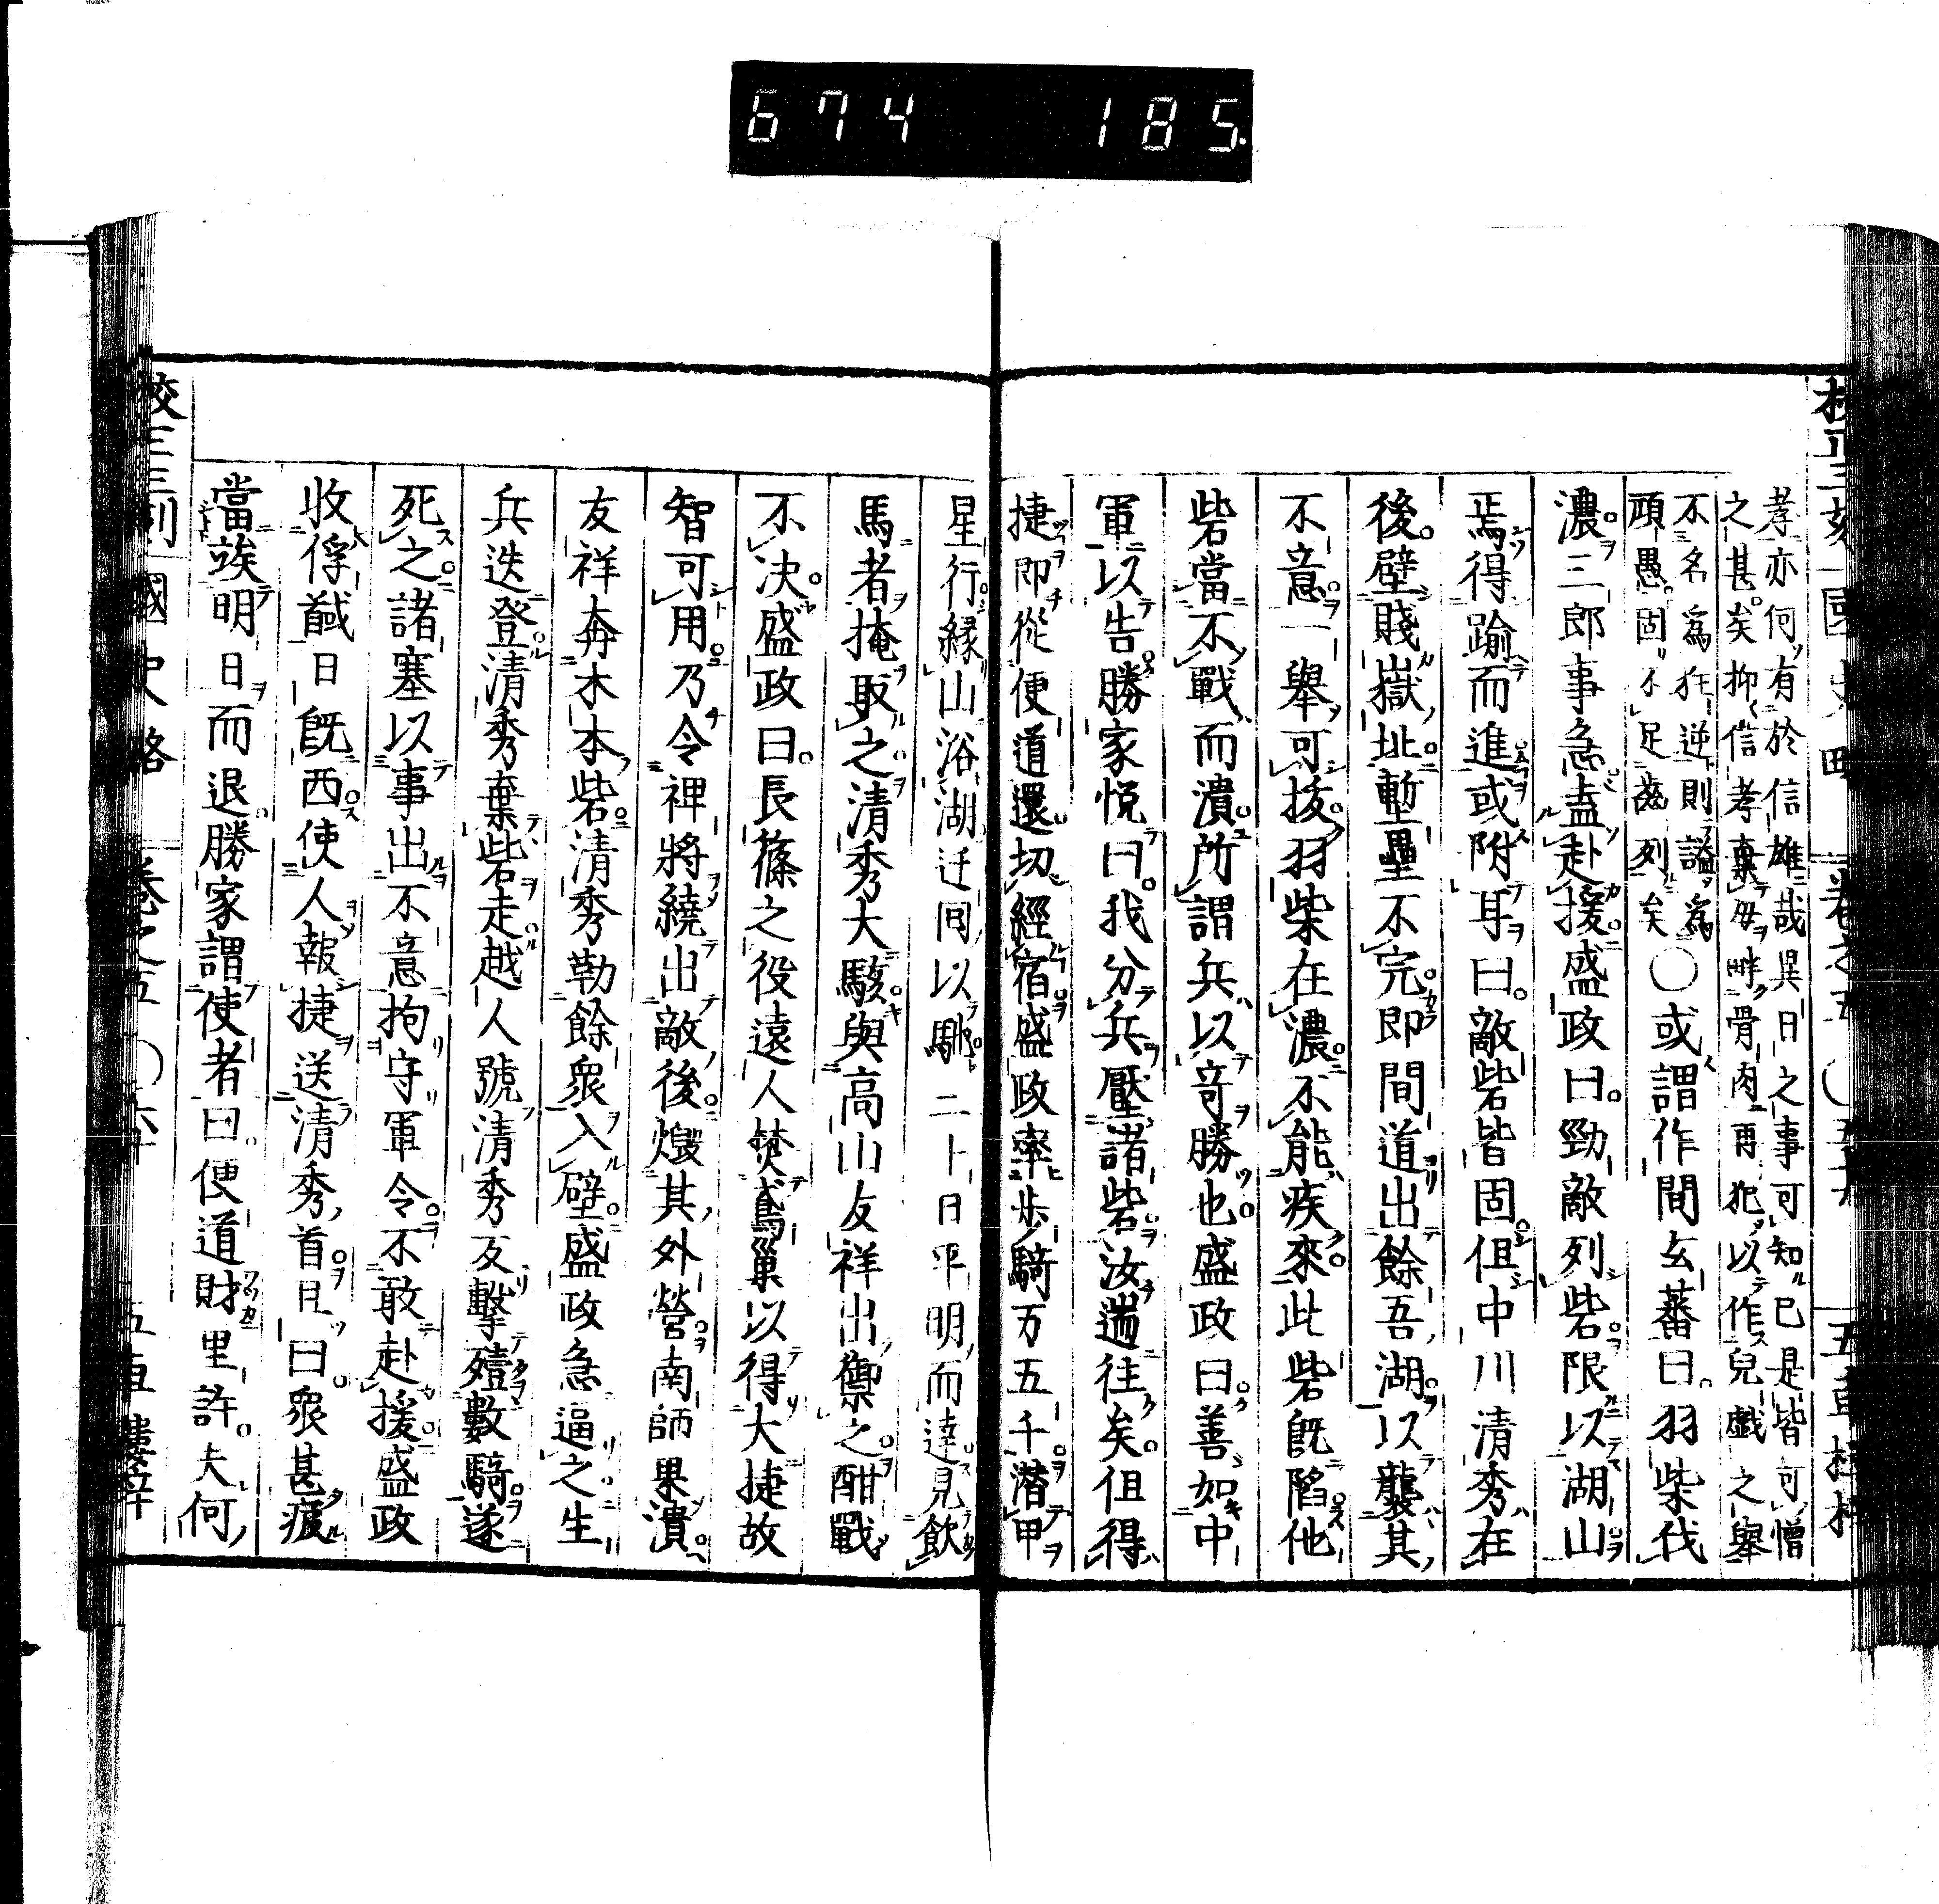 674 185
孝亦何有於信雄哉異日之事可知已是皆可憎
之甚矣抑信孝棄母畔骨肉再犯以作兒戯之舉
不名為狂逆則謚為
頑愚固不足齒列矣〇或謂作間玄蕃曰羽柴伐
濃三郎事急盍赴援盛政曰勁敵列砦限以湖山
焉得踰而進或附耳曰敵砦皆固但中川清秀在
後壁賤嶽址塹壘不完即間道出餘吾湖以襲其
不意一舉可拔羽柴在濃不能疾來此砦既陷他
砦當不戰而潰所謂兵以奇勝也盛政曰善如中
軍以告勝家悦曰我分兵壓諸砦汝遄往矣但得
捷即從便道還切經宿盛政率歩騎万五千潜甲
星行縁山浴湖迂回以馳二十日平明而達見飲
馬者掩取之清秀大駭與高山友祥出禦之酣戰
不决盛政曰長篠之役遠人焚鳶巢以得大捷故
智可用乃令裨將繞出敵後燬其外營南師果潰
友祥奔木本砦清秀勒餘眾入壁盛政急逼之生
兵迭登清秀棄砦走越人號清秀反擊殪數騎遂
死之諸塞以事出不意拘守軍令不敢赴援盛政
收俘馘日既西使人報捷送清秀首且曰眾甚疲
當竢明日而退勝家謂使者曰便道財里許夫何
國史略 卷之五 〇六十